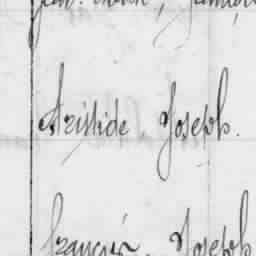 Aristide, Joseph.
François, Joseph